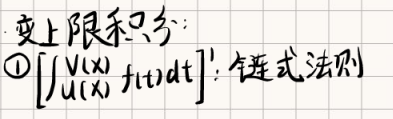 变上限积分:
①[∫U(x)V(x) f(t)dt]': 链式法则